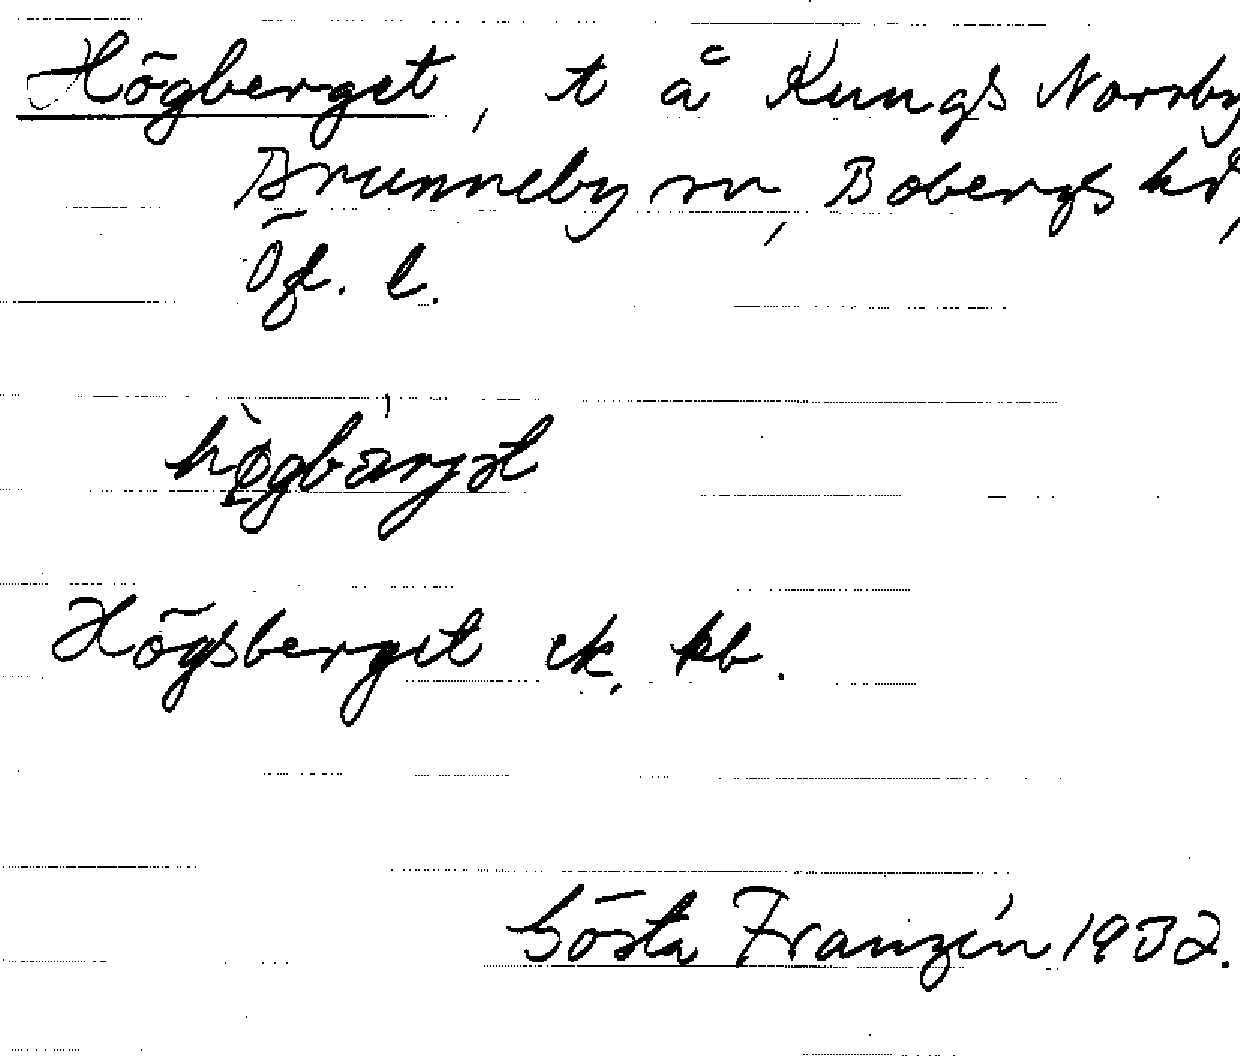 Högberget, t å Kungs Norrby
Brunneby sn, Bobergs hd,
Ögl. l.
Högsberget ek. kb.
Gösta Franzén 1932.